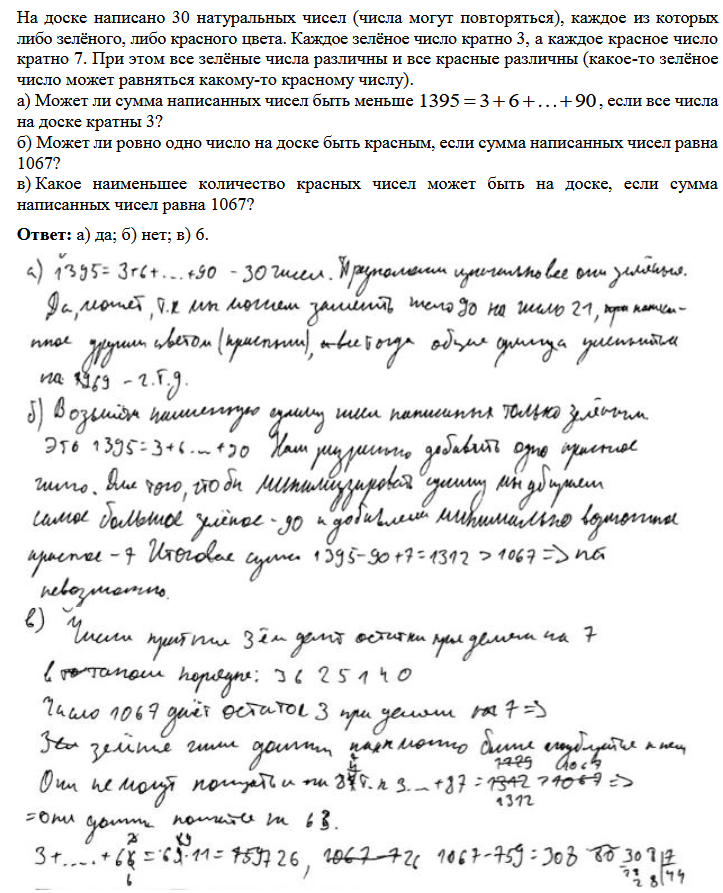 На доске написано 30 натуральных чисел (числа могут повторяться), каждое из которых
либо зелёного, либо красного цвета. Каждое зелёное число кратно 3, а каждое красное число
кратно 7. При этом все зелёные числа различны и все красные различны (какое-то зелёное
число может равняться какому-то красному числу).
а) Может ли сумма написанных чисел быть меньше 1395 = 3 + 6 + … + 90, если все числа
на доске кратны 3?
б) Может ли ровно одно число на доске быть красным, если сумма написанных чисел равна
1067?
в) Какое наименьшее количество красных чисел может быть на доске, если сумма
написанных чисел равна 1067?
Ответ: а) да; б) нет; в) 6.
а) 1395 = 3+6+...+90 - 30 чисел. Предположим изначально все они зелёные.
Да, может, т.к мы можем заменить число 90 на число 21,
другим цветом (красным), тогда общая сумма уменьшится
на 69 - ч.т.д.
б) Возьмём наименьшую сумму чисел написанных только зелёным
Это 1395 = 3+6...+90 Нам нужно добавить одно красное
число. Для того, чтобы минимизировать сумму мы убираем
самое большое зелёное - 90 и добавляем минимально возможное
красное - 7 Итоговая сумма 1395-90+7=1312 > 1067 =>
невозможно.
в) Числа кратные 3 дают остатки при делении на 7
в таком порядке: 3 6 2 5 1 4 0
Число 1067 даёт остаток 3 при делении на 7 =>
зелёные числа должны
Они не могут т.к 3...+87 = 1312 > 1067 =>
= они должны
3+.....+66 = 69·11 = 759, 1067-759=308 308 7
28 44